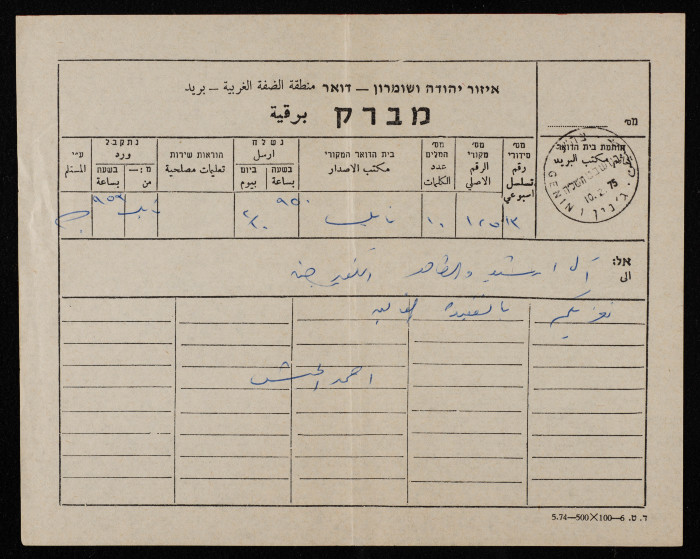 איזור יהודה ושומרון — דואר منطقة الضفة الغربية — بريد
מברק برقية
מס׳
חותמת בית הדואר
خاتم مكتب البريد
GENIN ג׳נין
10.2.75
מס׳ סידורי رقم تسلسل اسبوعي
מס׳ מקורי الرقم الاصلي
מס׳ המלים عدد الكلمات
בית הדואר המקורי مكتب الاصدار
נשלח ارسل
בשעה بساعة
ביום بيوم
הוראות שירות تعليمات مصلحية
נתקבל ورد
מ:— من
בשעה بساعة
ע״י المستلم
١٣ ١٢٥ ١٠ نابلس ٩٥٠ نابلس ٩٥٣
אל: الى
آل ارشيد والظاهر الكفير جنين
نعزيكم بالفقيدة الغالية
احمد الحبش
ד. ט. 6—100×500—5.74